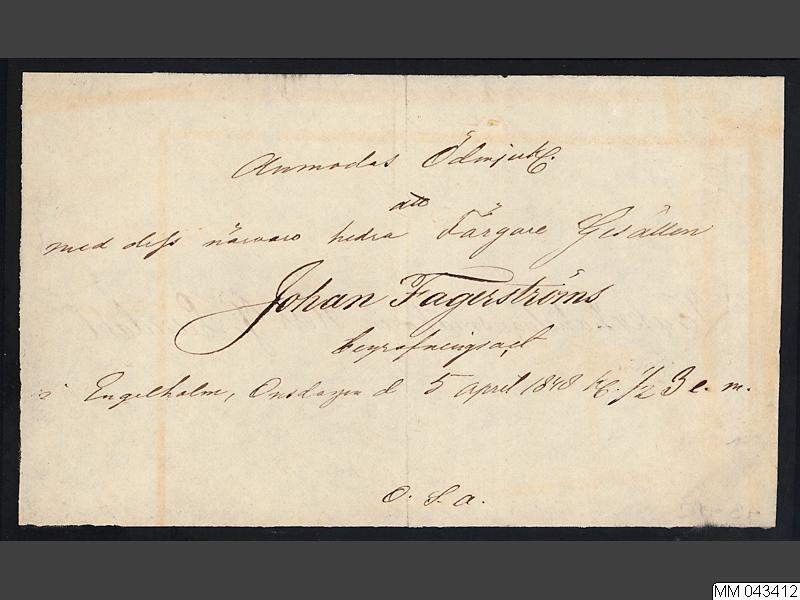 Anmodas Ödmjuk.
att
med dess närvaro hedra Färgare Gesällen
Johan Fagerströms
begrafningsact
i Engelholm, Onsdagen d 5 april 1848 kl. 1/2 3 e. m.
O. S. a.
MM 043412